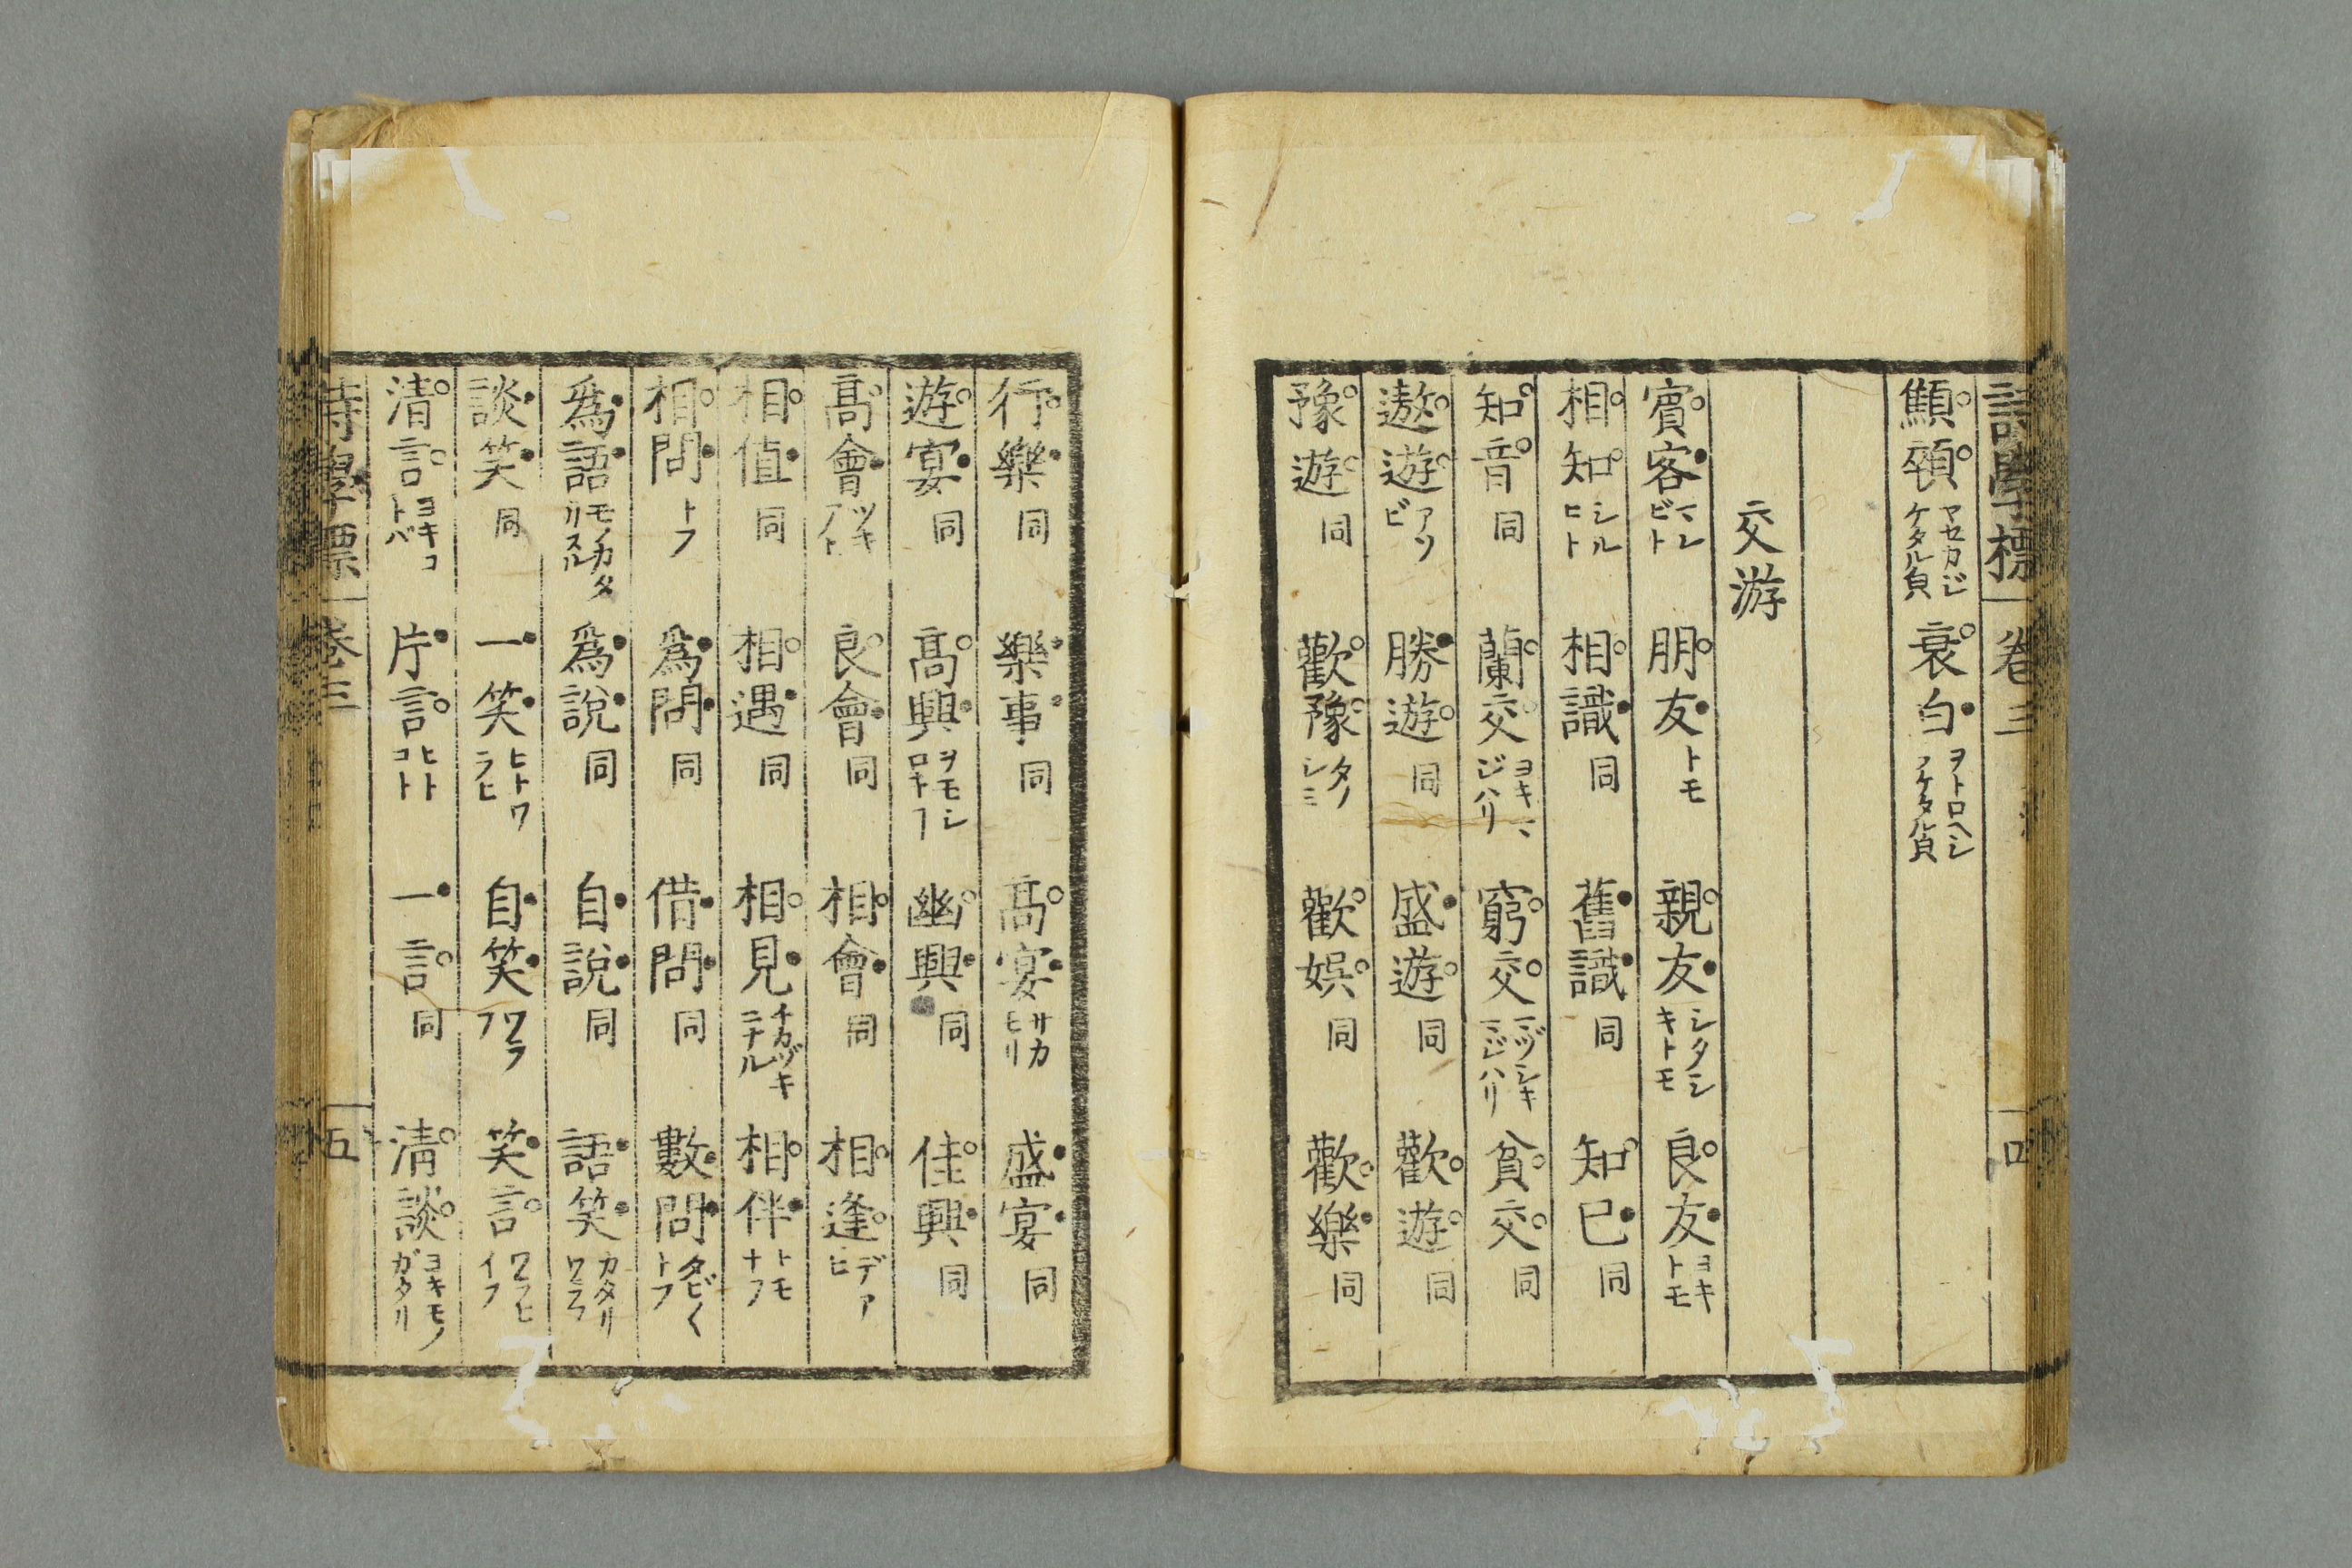 詩學標 卷三 四
顦顇 ヤセカジケタル皃 衰白 ヲトロヘシラケタル皃
交游
賓客 マレビト 朋友 トモ 親友 シタシキトモ 良友 ヨキトモ
相知 シルヒト 相識 同 舊識 同 知己 同
知音 同 蘭交 ヨキマジハリ 窮交 マヅシキマジハリ 貧交 同
遨遊 アソビ 勝遊 同 盛遊 同 歡遊 同
豫遊 同 歡豫 タノシミ 歡娯 同 歡樂 同
行樂 同 樂事 同 高宴 サカモリ 盛宴 同
遊宴 同 高興 ヲモシロキヿ 幽興 同 佳興 同
高會 ツキアヒ 良會 同 相會 同 相逢 デアヒ
相值 同 相遇 同 相見 チカヅキニナル 相伴 トモナフ
相問 トフ 爲問 同 借問 同 數問 タビ〱トフ
爲語 モノカタリスル 爲說 同 自說 同 語笑 カタリワラフ
談笑 同 一笑 ヒトワラヒ 自笑 ワラフ 笑言 ワラヒイフ
清言 ヨキコトバ 片言 ヒトコト 一言 同 清談 ヨキモノガタリ
詩學標 卷三 五